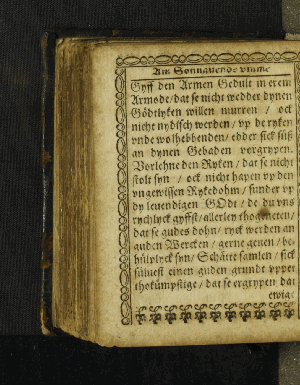 Am Sonnavende vmme
Gyff den Armen Gedult in erem
Armode/dat se nicht wedder dynen
Gödtlyken willen murren / ock
nicht nydisch werden / vp de ryken
vnde wolhebbenden / edder sick süß
an dynen Gebaden vorgrypen.
Vorlehne den Ryken / dat se nicht
stolt syn / ock nicht hapen vp den
vngewissen Rykedohm/ sunder vp
dy leuendigen GOdt / de du vns
rychlyck gyffst/ allerley thogeneten/
dat se gudes dohn/ ryck werden an
guden Wercken / gerne geuen / be-
hülplyck syn/ Schätte samlen / sick
süluest einen guden grundt vppet
thokümpstige / dat se ergrypen dat
ewige